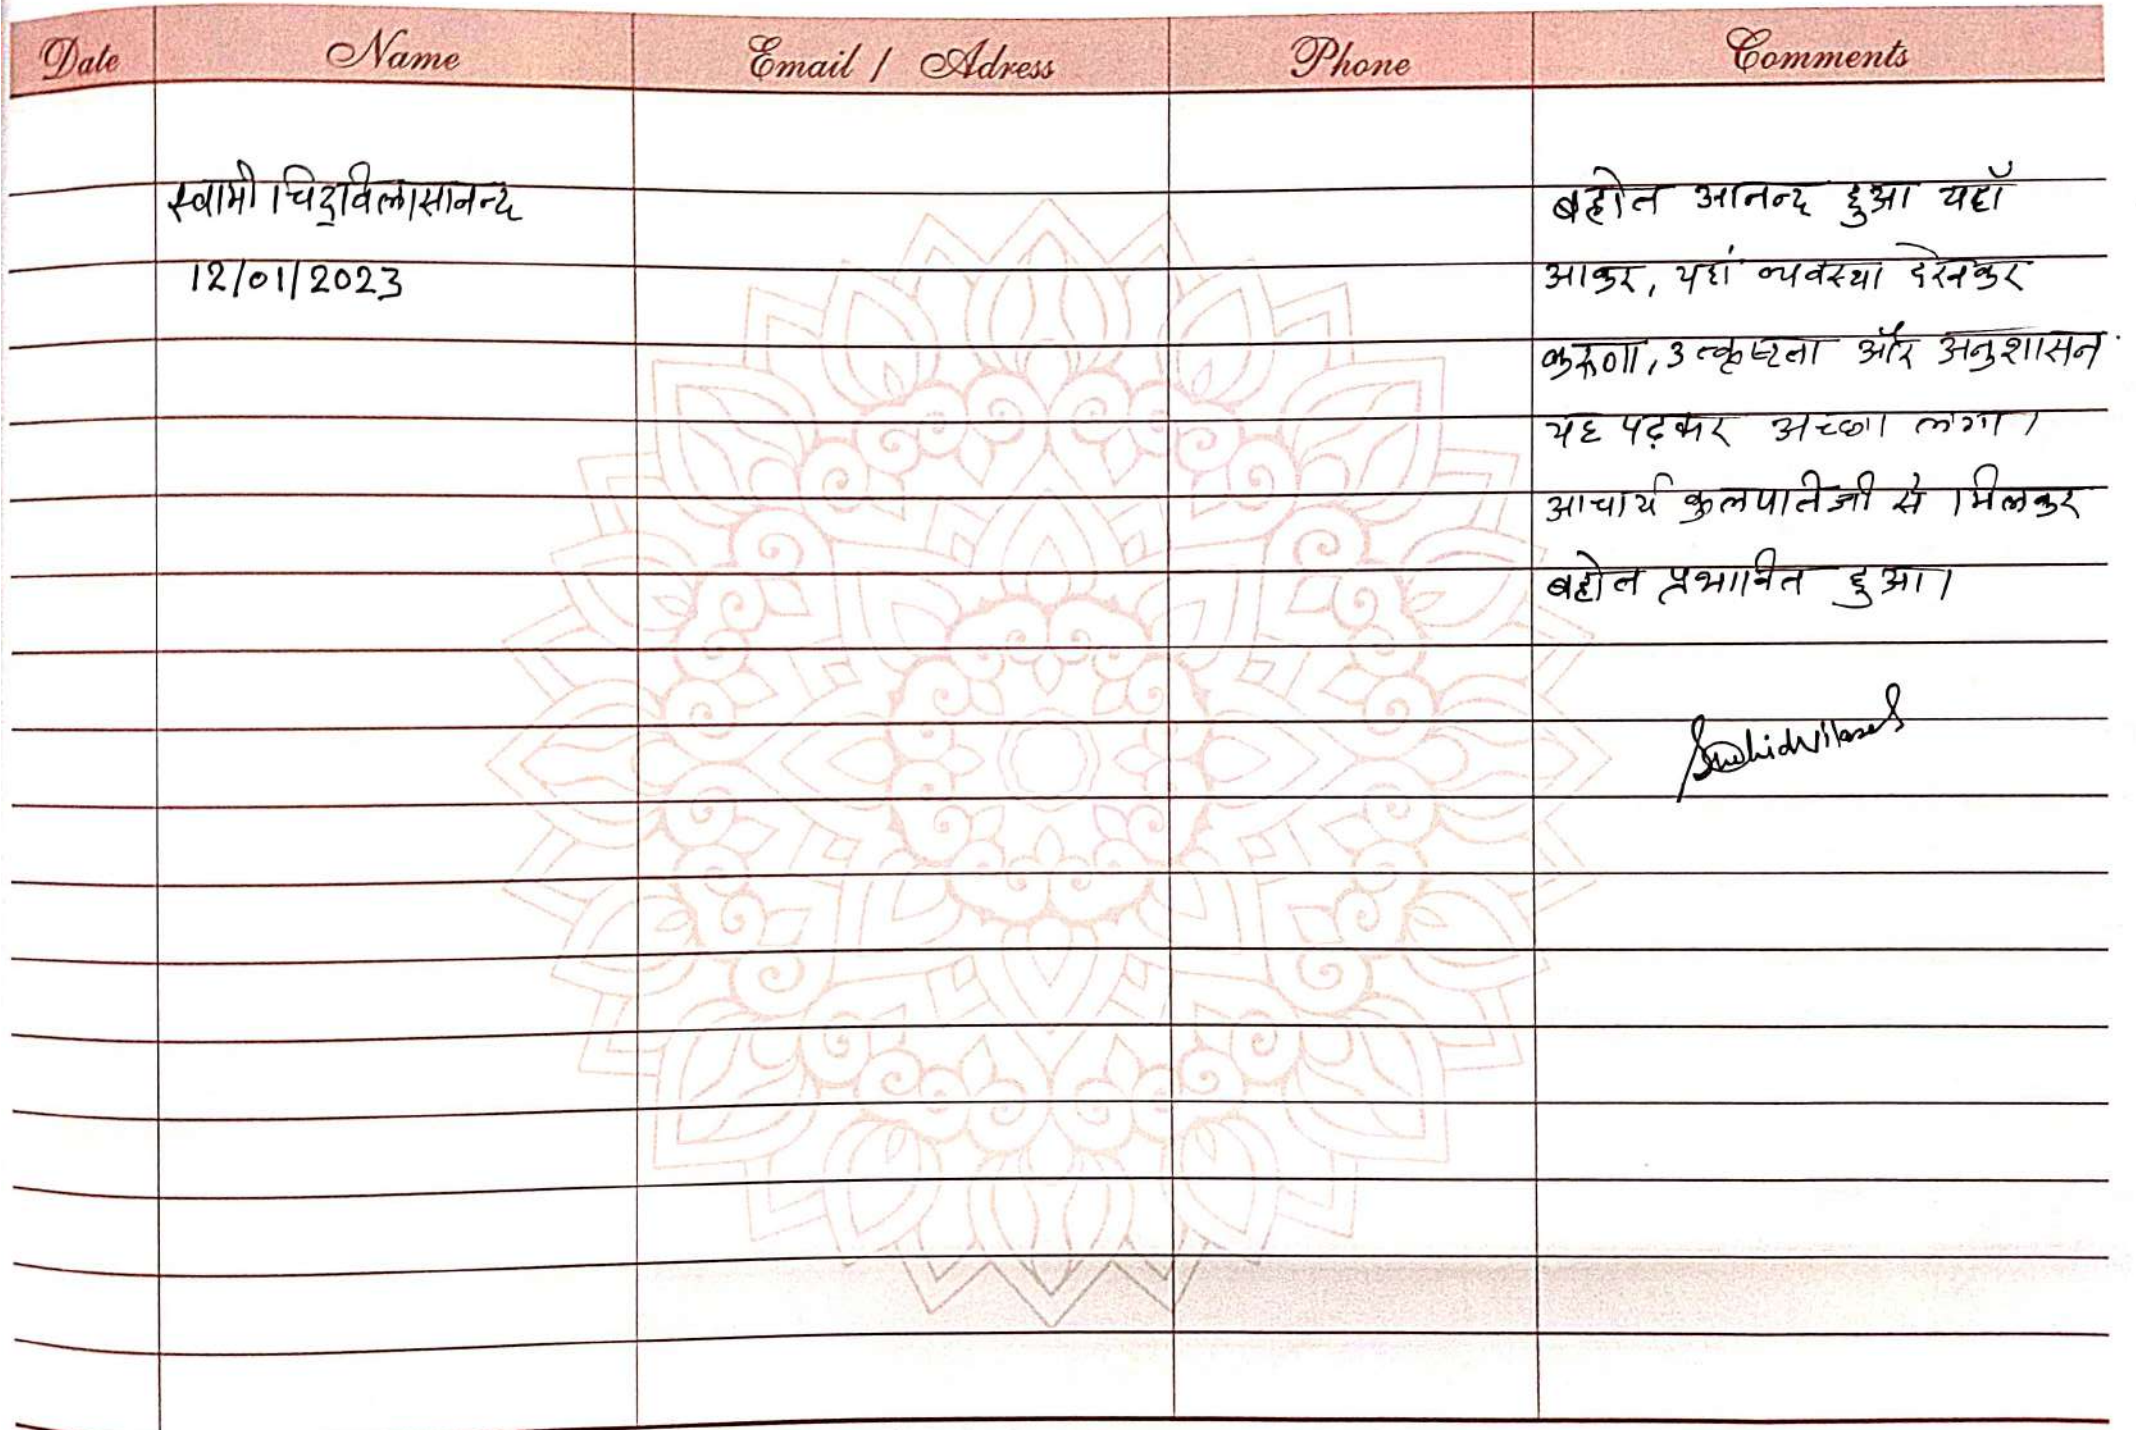 Date Name Email / Adress Phone Comments
स्वामी चिद्विलासानन्द
12/01/2023
बहोत आनन्द हुआ यहाँ
आकर, यहां व्यवस्था देखकर
करुणा, उत्कृष्टता और अनुशासन
यह पढ़कर अच्छा लगा।
आचार्य कुलपतिजी से मिलकर
बहोत प्रभावित हुआ।